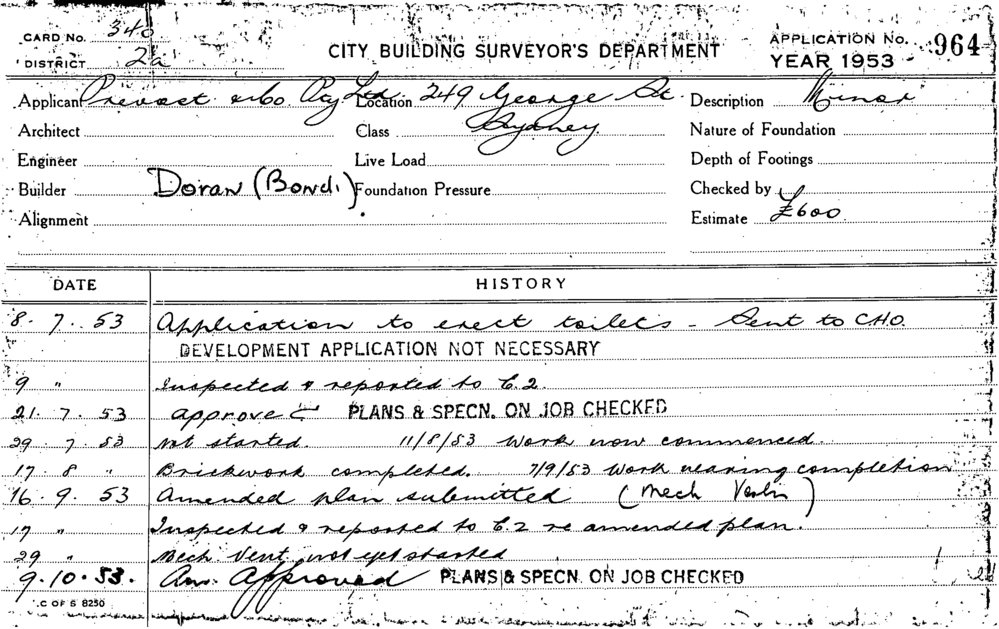 CARD No. 340
DISTRICT 2a
CITY BUILDING SURVEYOR'S DEPARTMENT
APPLICATION No. 964
YEAR 1953
Applicant Prevost & Co Pty Ltd Location 249 George St. Description Minor
Architect Class Sydney Nature of Foundation
Engineer Live Load Depth of Footings
Builder Doran (Bond.) Foundation Pressure Checked by
Alignment Estimate £600
DATE HISTORY
8. 7. 53 Application to erect toilets - Sent to C.H.O.
DEVELOPMENT APPLICATION NOT NECESSARY
9 " Inspected & reported to C.2.
21. 7. 53 Approved PLANS & SPECN. ON JOB CHECKED
29. 7. 53 Not started. 11/8/53 Work now commenced.
17. 8 " Brickwork completed. 7/9/53 Work nearing completion
16. 9. 53 Amended plan submitted (Mech Ventn)
17 " Inspected & reported to C.2 re amended plan.
29 " Mech Vent not yet started
9. 10. 53. Am. Approved PLANS & SPECN. ON JOB CHECKED
C OF S 8250